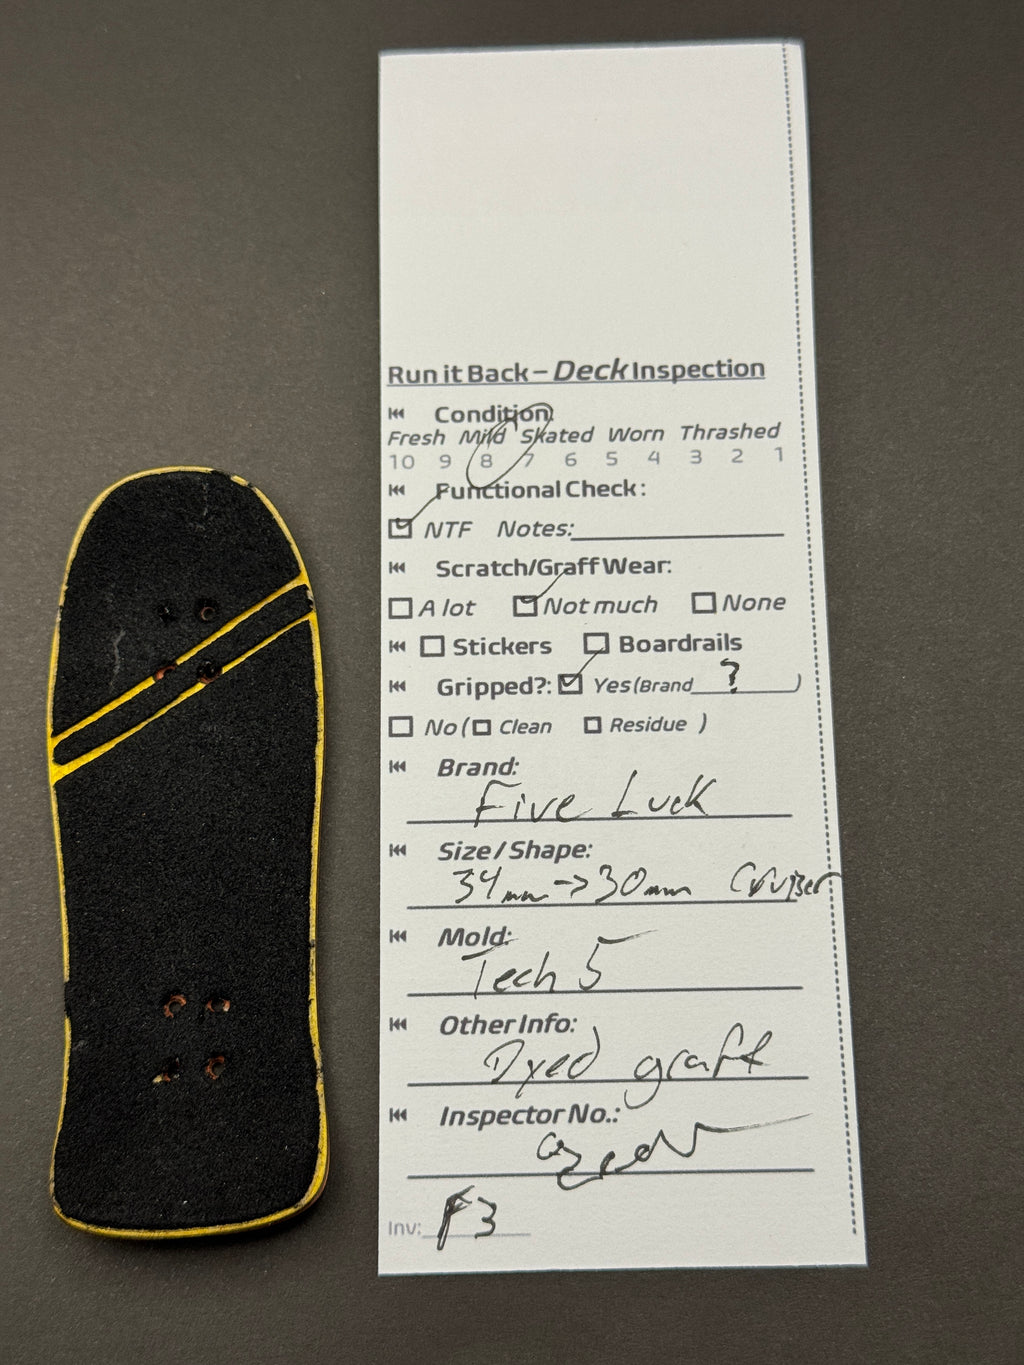 Run it Back – Deck Inspection
Condition
Fresh Mild Skated Worn Thrashed
10 9 8 7 6 5 4 3 2 1
Functional Check:
NTF Notes:
Scratch/Graff Wear:
A lot Not much None
Stickers Boardrails
Gripped?: Yes (Brand ? )
No ( Clean Residue )
Brand:
Five Luck
Size / Shape:
34mm -> 30mm Cruiser
Mold:
Tech 5
Other Info:
Dyed graft
Inspector No.:
Inv: F3